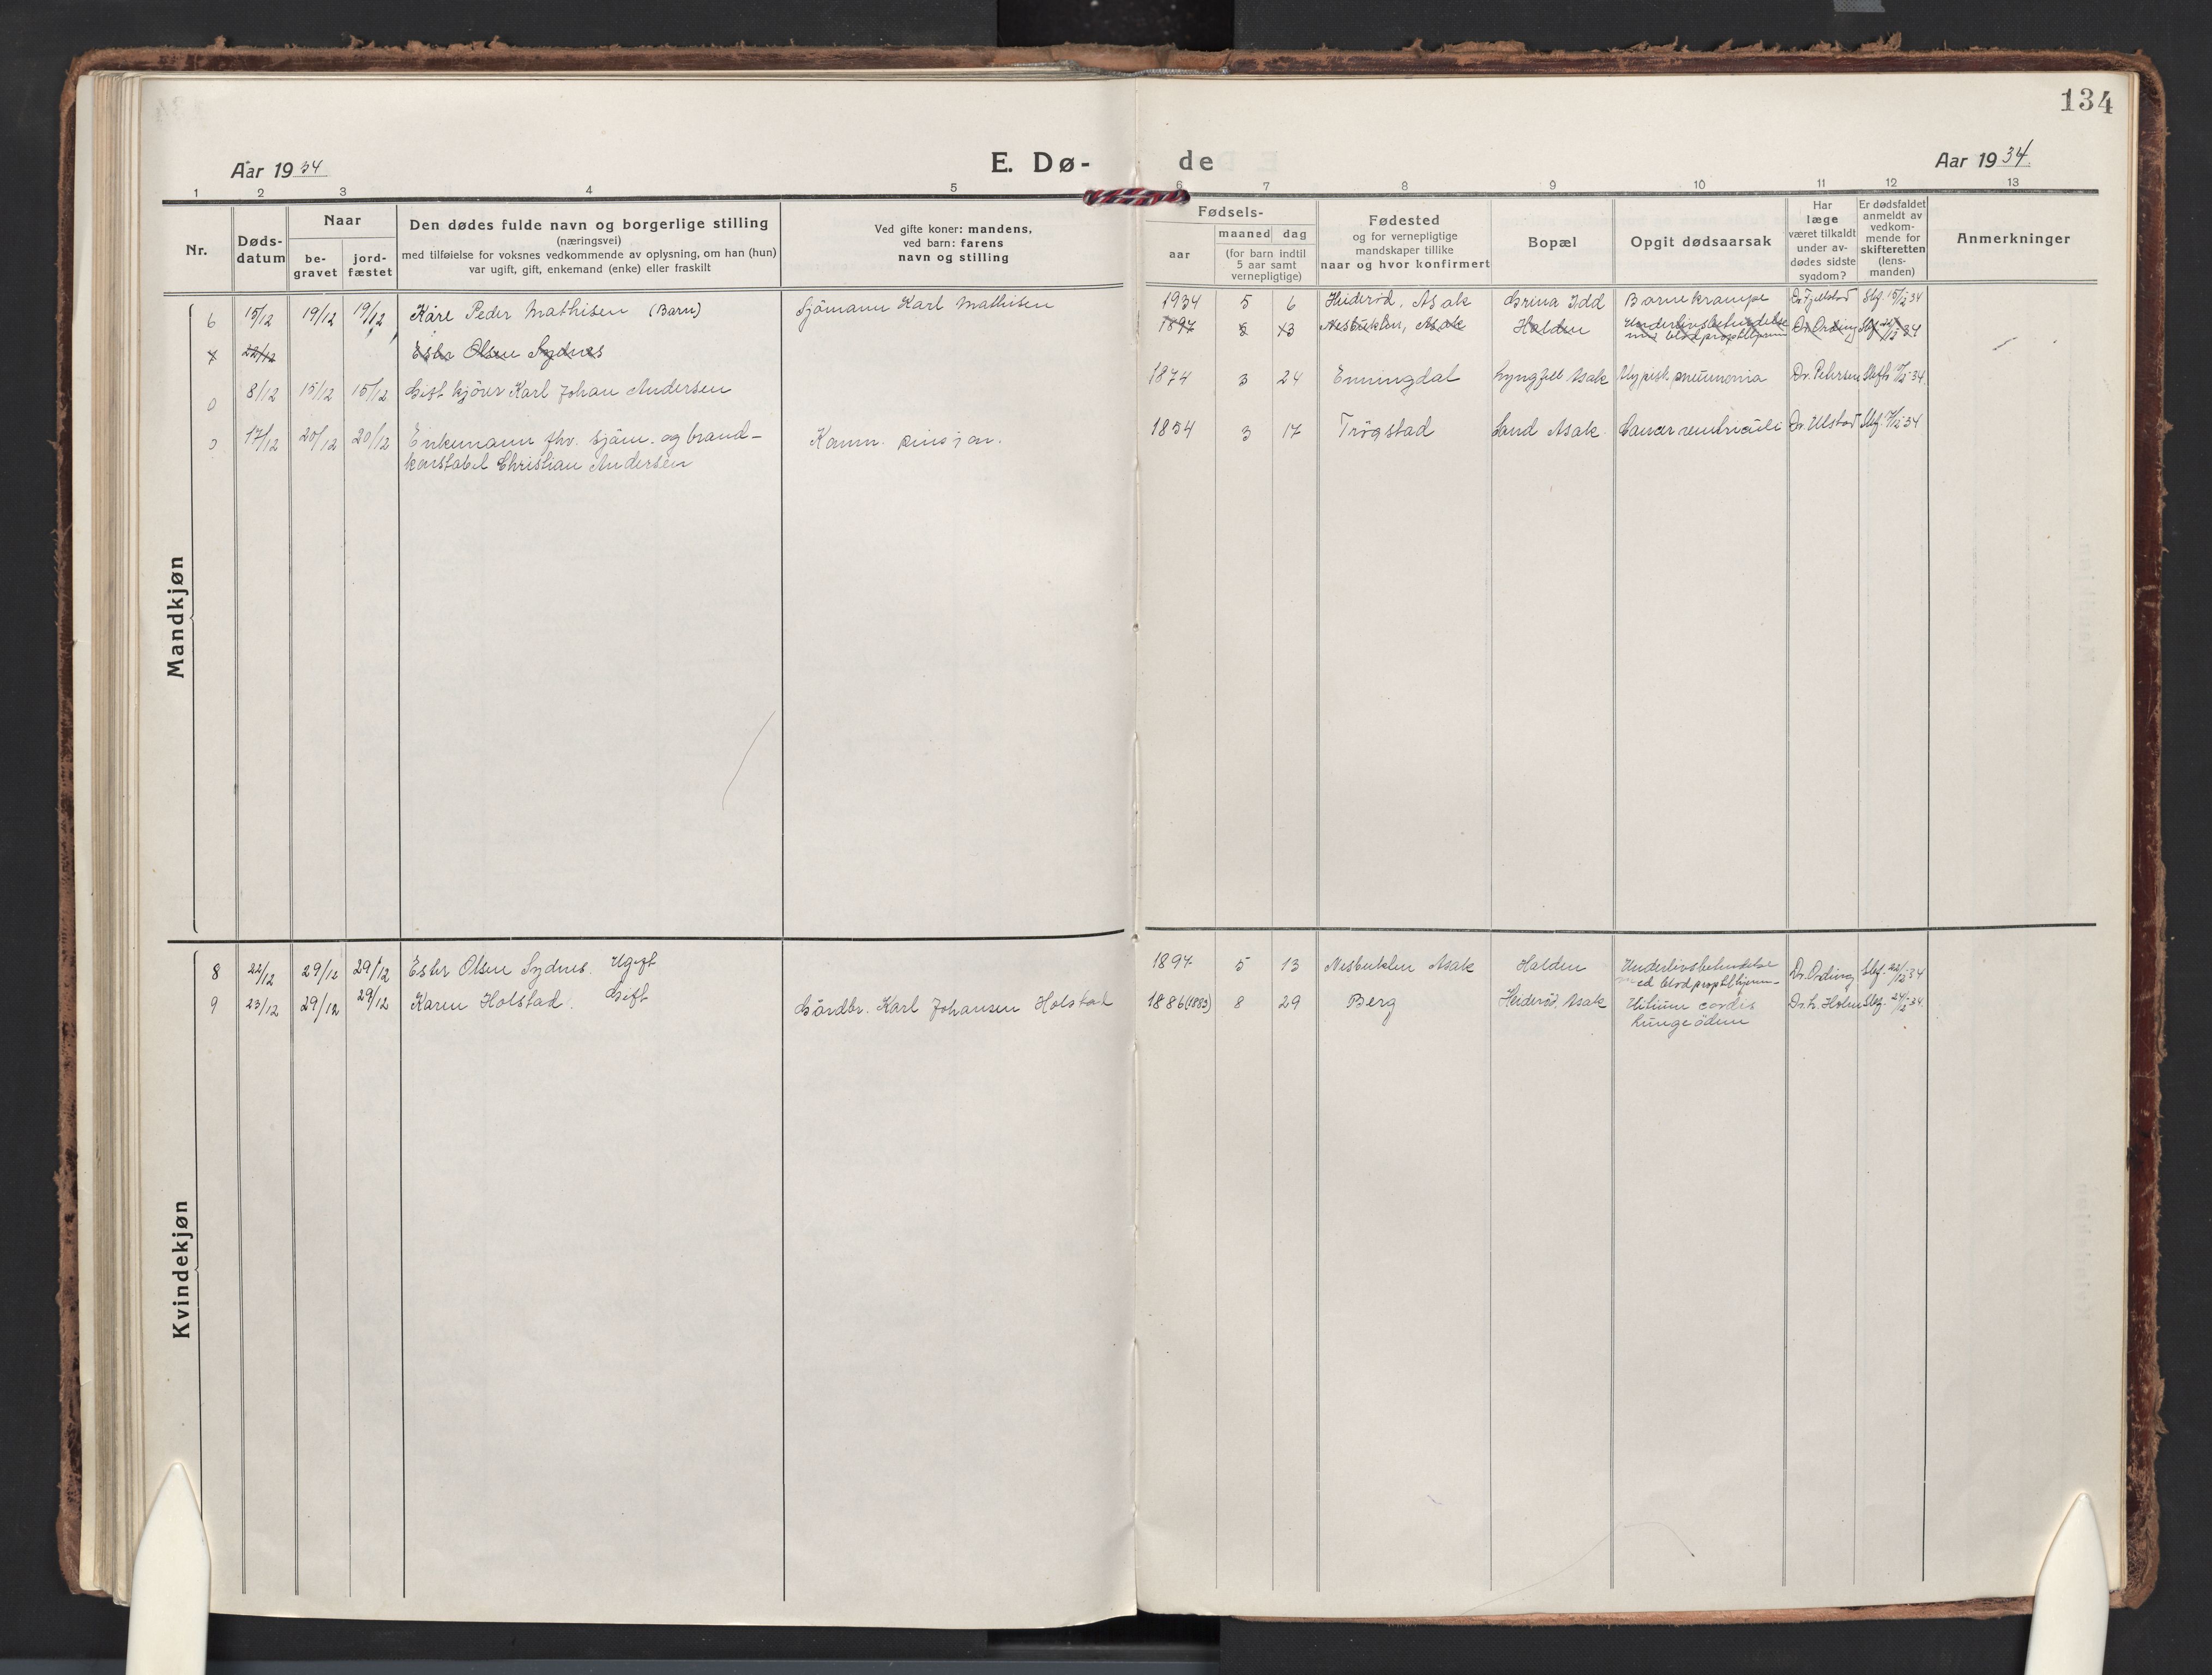 134
Aar 1934
E. Dø-
de
Aar 1934
1 2 3 4 5 6 7 8 9 10 11 12 13
Nr.
Døds-
datum
Naar
be-
gravet
jord-
fæstet
Den dødes fulde navn og borgerlige stilling
(næringsvei)
med tilføielse for voksnes vedkommende av oplysning, om han (hun)
var ugift, gift, enkemand (enke) eller fraskilt
Ved gifte koner: mandens,
ved barn: farens
navn og stilling
Fødsels-
aar
maaned dag
(for barn indtil
5 aar samt
vernepligtige)
Fødested
og for vernepligtige
mandskaper tillike
naar og hvor konfirmert
Bopæl
Opgit dødsaarsak
Har
læge
været tilkaldt
under av-
dødes sidste
sygdom?
Er dødsfaldet
anmeldt av
vedkom-
mende for
skifteretten
(lens-
manden)
Anmerkninger
Mandkjøn
6 15/12 19/12 19/12 Kåre Peder Mathisen (Barn) Sjömann Karl Mathisen 1934 5 6 Heideröd, Asak Grina Idd Barnekrampe Dr. Fjellstad Sbf. 15/12 34
22/12 Ester Olsen Sydnes 1897 5 13 Nesbuklen, Asak Halden Underlivsbetendelse Dr. Ording Sbf. 22/12 34
med blodpropthjerne
0 8/12 15/12 15/12 Gift kjörer Karl Johan Andersen 1874 3 24 Enningdal Lyngfelt Asak pneumonia Dr. Petersen 34
0 17/12 20/12 20/12 Enkemann fhv. sjöm. og brand- Komm. pinsjon. 1854 3 17 Trögstad Sand Asak. Cancer ventriculi Dr. Ulstad Sbf. 34
konstabel Christian Andersen
Kvindekjøn
8 22/12 29/12 29/12 Ester Olsen Sydnes. Ugift 1897 5 13 Nesbuklen Asak Halden Underlivsbetendelse Dr. Ording Sbf. 22/12 34
med blodpropthjerne-
9 23/12 29/12 29/12 Karen Holstad. Gift Gårdbr. Karl Johansen Holstad 1886(1883) 8 29 Berg Heideröd, Asak Vitium cordis Dr. L. Holm Sbf. 24/12 34
Lungeödem